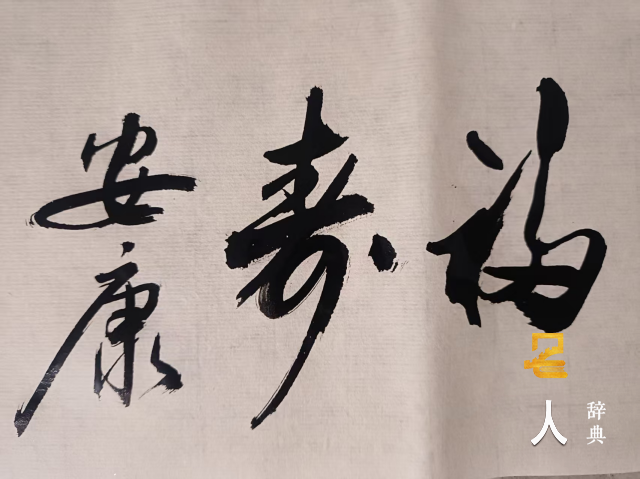 福寿安康
名人辞典